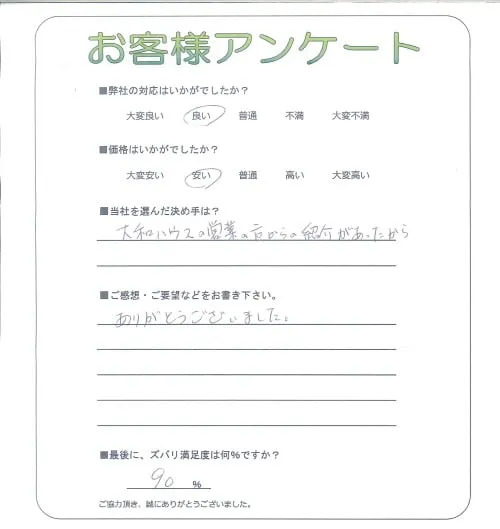 お客様アンケート
■弊社の対応はいかがでしたか?
大変良い 良い 普通 不満 大変不満
■価格はいかがでしたか?
大変安い 安い 普通 高い 大変高い
■当社を選んだ決め手は?
大和ハウスの営業の方からの紹介があったから
■ご感想・ご要望などをお書き下さい。
ありがとうございました。
■最後に、ズバリ満足度は何%ですか?
90 %
ご協力頂き、誠にありがとうございました。